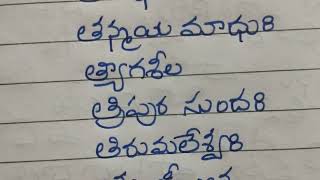 తన్మయ మాధురి
త్యాగశీల
త్రిపుర సుందరి
తిరుమలేశ్వరి